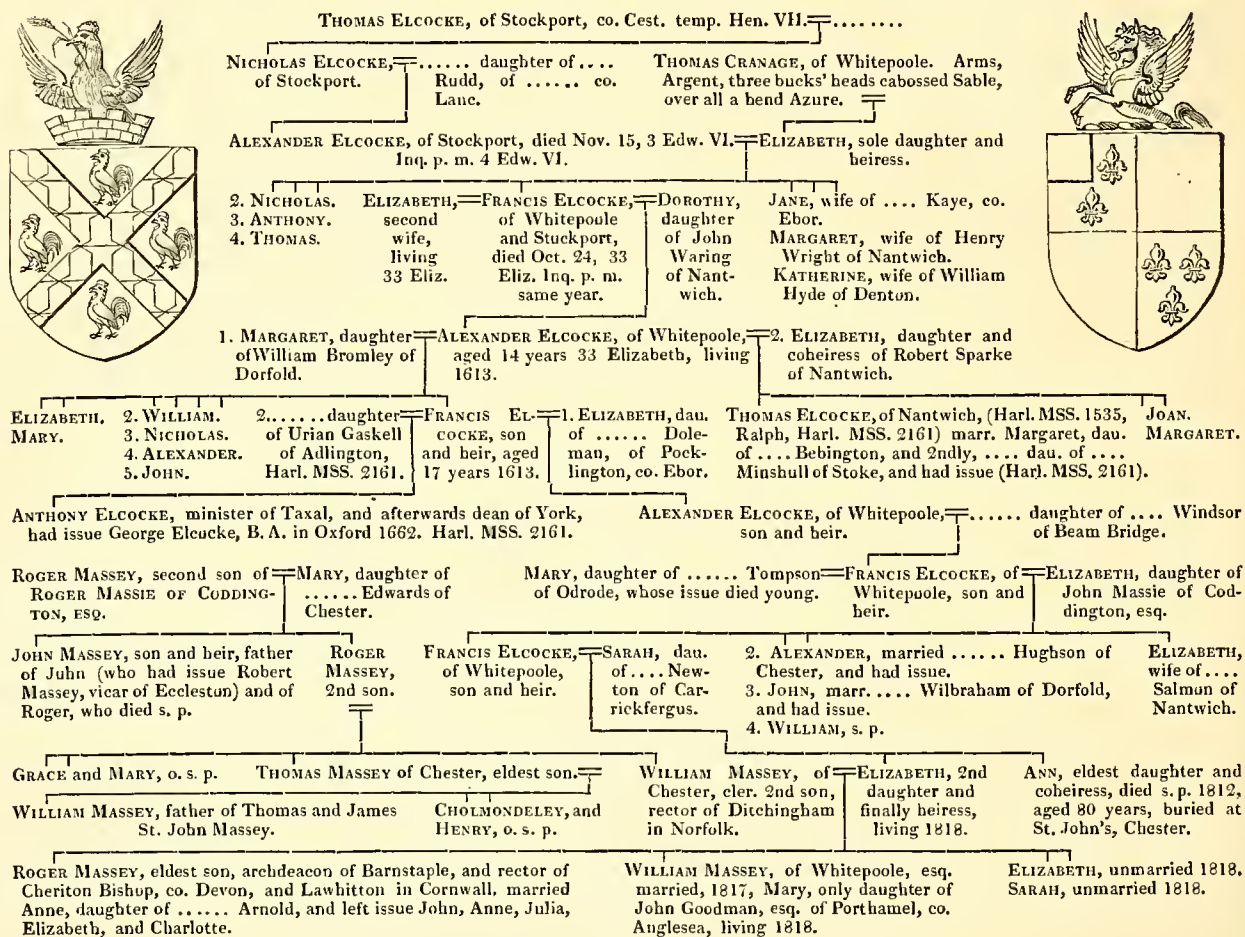 THOMAS ELCOCKE, of Stockport, co. Cest. temp. Hen. VII.=........
NICHOLAS ELCOCKE,=...... daughter of ....
of Stockport.
Rudd, of ...... co.
Lanc.
THOMAS CRANAGE, of Whitepoole. Arms,
Argent, three bucks' heads cabossed Sable,
over all a bend Azure. =
ALEXANDER ELCOCKE, of Stockport, died Nov. 15, 3 Edw. VI.=ELIZABETH, sole daughter and
Inq. p. m. 4 Edw. VI.
heiress.
2. NICHOLAS.
3. ANTHONY.
4. THOMAS.
ELIZABETH,=
second
wife,
living
33 Eliz.
FRANCIS ELCOCKE,=
of Whitepoole
and Stockport,
died Oct. 24, 33
Eliz. Inq. p. m.
same year.
DOROTHY,
daughter
of John
Waring
of Nant-
wich.
JANE, wife of .... Kaye, co.
Ebor.
MARGARET, wife of Henry
Wright of Nantwich.
KATHERINE, wife of William
Hyde of Denton.
1. MARGARET, daughter=
of William Bromley of
Dorfold.
ALEXANDER ELCOCKE, of Whitepoole,=
aged 14 years 33 Elizabeth, living
1613.
2. ELIZABETH, daughter and
coheiress of Robert Sparke
of Nantwich.
ELIZABETH.
MARY.
2. WILLIAM.
3. NICHOLAS.
4. ALEXANDER.
5. JOHN.
2....... daughter=
of Urian Gaskell
of Adlington,
Harl. MSS. 2161.
FRANCIS EL-=
COCKE, son
and heir, aged
17 years 1613.
1. ELIZABETH, dau.
of ...... Dole-
man, of Pock-
lington, co. Ebor.
THOMAS ELCOCKE, of Nantwich, (Harl. MSS. 1535,
Ralph, Harl. MSS. 2161) marr. Margaret, dau.
of .... Bebington, and 2ndly, .... dau. of ....
Minshull of Stoke, and had issue (Harl. MSS. 2161).
JOAN.
MARGARET.
ANTHONY ELCOCKE, minister of Taxal, and afterwards dean of York,
had issue George Elcocke, B. A. in Oxford 1662. Harl. MSS. 2161.
ALEXANDER ELCOCKE, of Whitepoole,=...... daughter of .... Windsor
son and heir.
of Beam Bridge.
ROGER MASSEY, second son of=
ROGER MASSIE OF CODDING-
TON, ESQ.
MARY, daughter of
...... Edwards of
Chester.
MARY, daughter of ...... Tompson=
of Odrode, whose issue died young.
FRANCIS ELCOCKE, of=
Whitepoole, son and
heir.
ELIZABETH, daughter of
John Massie of Cod-
dington, esq.
JOHN MASSEY, son and heir, father
of John (who had issue Robert
Massey, vicar of Eccleston) and of
Roger, who died s. p.
ROGER
MASSEY,
2nd son.
=
FRANCIS ELCOCKE,=
of Whitepoole,
son and heir.
SARAH, dau.
of .... New-
ton of Car-
rickfergus.
2. ALEXANDER, married ...... Hughson of
Chester, and had issue.
3. JOHN, marr. .... Wilbraham of Dorfold,
and had issue.
4. WILLIAM, s. p.
ELIZABETH,
wife of ....
Salmon of
Nantwich.
GRACE and MARY, o. s. p.
THOMAS MASSEY of Chester, eldest son.=
WILLIAM MASSEY, of=
Chester, cler. 2nd son,
rector of Ditchingham
in Norfolk.
ELIZABETH, 2nd
daughter and
finally heiress,
living 1818.
ANN, eldest daughter and
coheiress, died s. p. 1812,
aged 80 years, buried at
St. John's, Chester.
WILLIAM MASSEY, father of Thomas and James
St. John Massey.
CHOLMONDELEY, and
HENRY, o. s. p.
ROGER MASSEY, eldest son, archdeacon of Barnstaple, and rector of
Cheriton Bishop, co. Devon, and Lawhitton in Cornwall, married
Anne, daughter of ...... Arnold, and left issue John, Anne, Julia,
Elizabeth, and Charlotte.
WILLIAM MASSEY, of Whitepoole, esq.
married, 1817, Mary, only daughter of
John Goodman, esq. of Porthamel, co.
Anglesea, living 1818.
ELIZABETH, unmarried 1818.
SARAH, unmarried 1818.